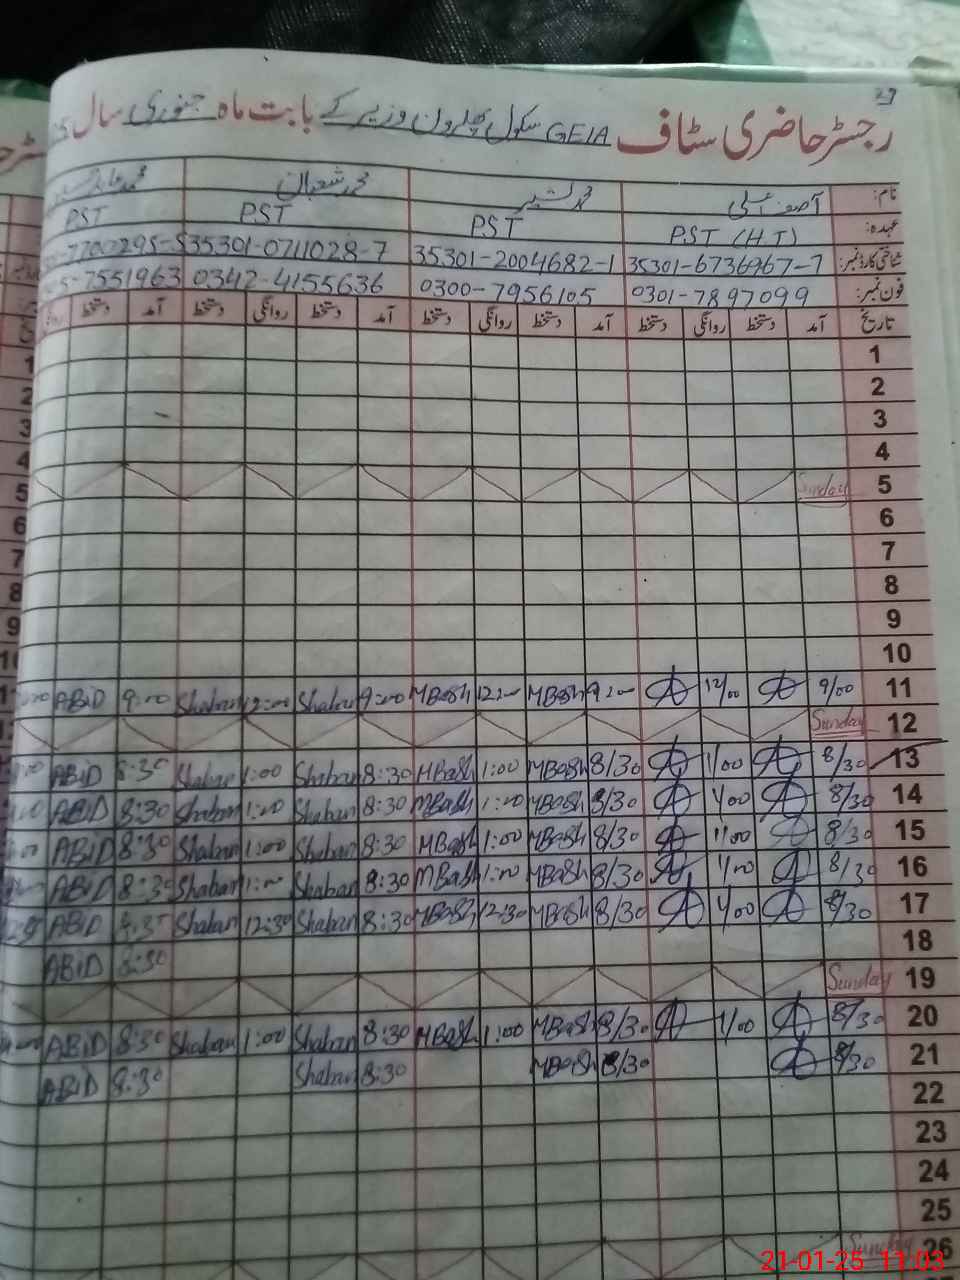 29
رجسٹر حاضری سٹاف GEIA سکول پھلرون وزیر کے بابت ماہ جنوری سال
نام: آصف علی محمد بشیر محمد شعبان محمد عابد
عہدہ: PST (H.T) PST PST PST
شناختی کارڈ نمبر: 35301-6736967-7 35301-2004682-1 35301-0711028-7 7700295-5
فون نمبر: 0301-7897099 0300-7956105 0342-4155636 7551963
تاریخ آمد دستخط روانگی دستخط آمد دستخط روانگی دستخط آمد دستخط روانگی دستخط آمد دستخط
1
2
3
4
5 Sunday
6
7
8
9
10
11 9/00 12/00 9:00 MBash 12:00 MBash 9:00 Shaban 12:00 Shaban 9:00 ABiD
12 Sunday
13 8/30 1/00 8/30 MBash 1:00 MBash 8:30 Shaban 1:00 Shaban 8:30 ABiD
14 8/30 1/00 8/30 MBash 1:00 MBash 8:30 Shaban 1:00 Shaban 8:30 ABiD
15 8/30 1/00 8/30 MBash 1:00 MBash 8:30 Shaban 1:00 Shaban 8:30 ABiD
16 8/30 1/00 8/30 MBash 1:00 MBash 8:30 Shaban 1:00 Shaban 8:30 ABiD
17 8/30 1/00 8/30 MBash 12:30 MBash 8:30 Shaban 12:30 Shaban 8:30 ABiD
18 8:30 ABiD
19 Sunday
20 8/30 1/00 8/30 MBash 1:00 MBash 8:30 Shaban 1:00 Shaban 8:30 ABiD
21 8/30 8/30 MBash 8:30 Shaban 8:30 ABiD
22
23
24
25
26 Sunday
21-01-25 11:03